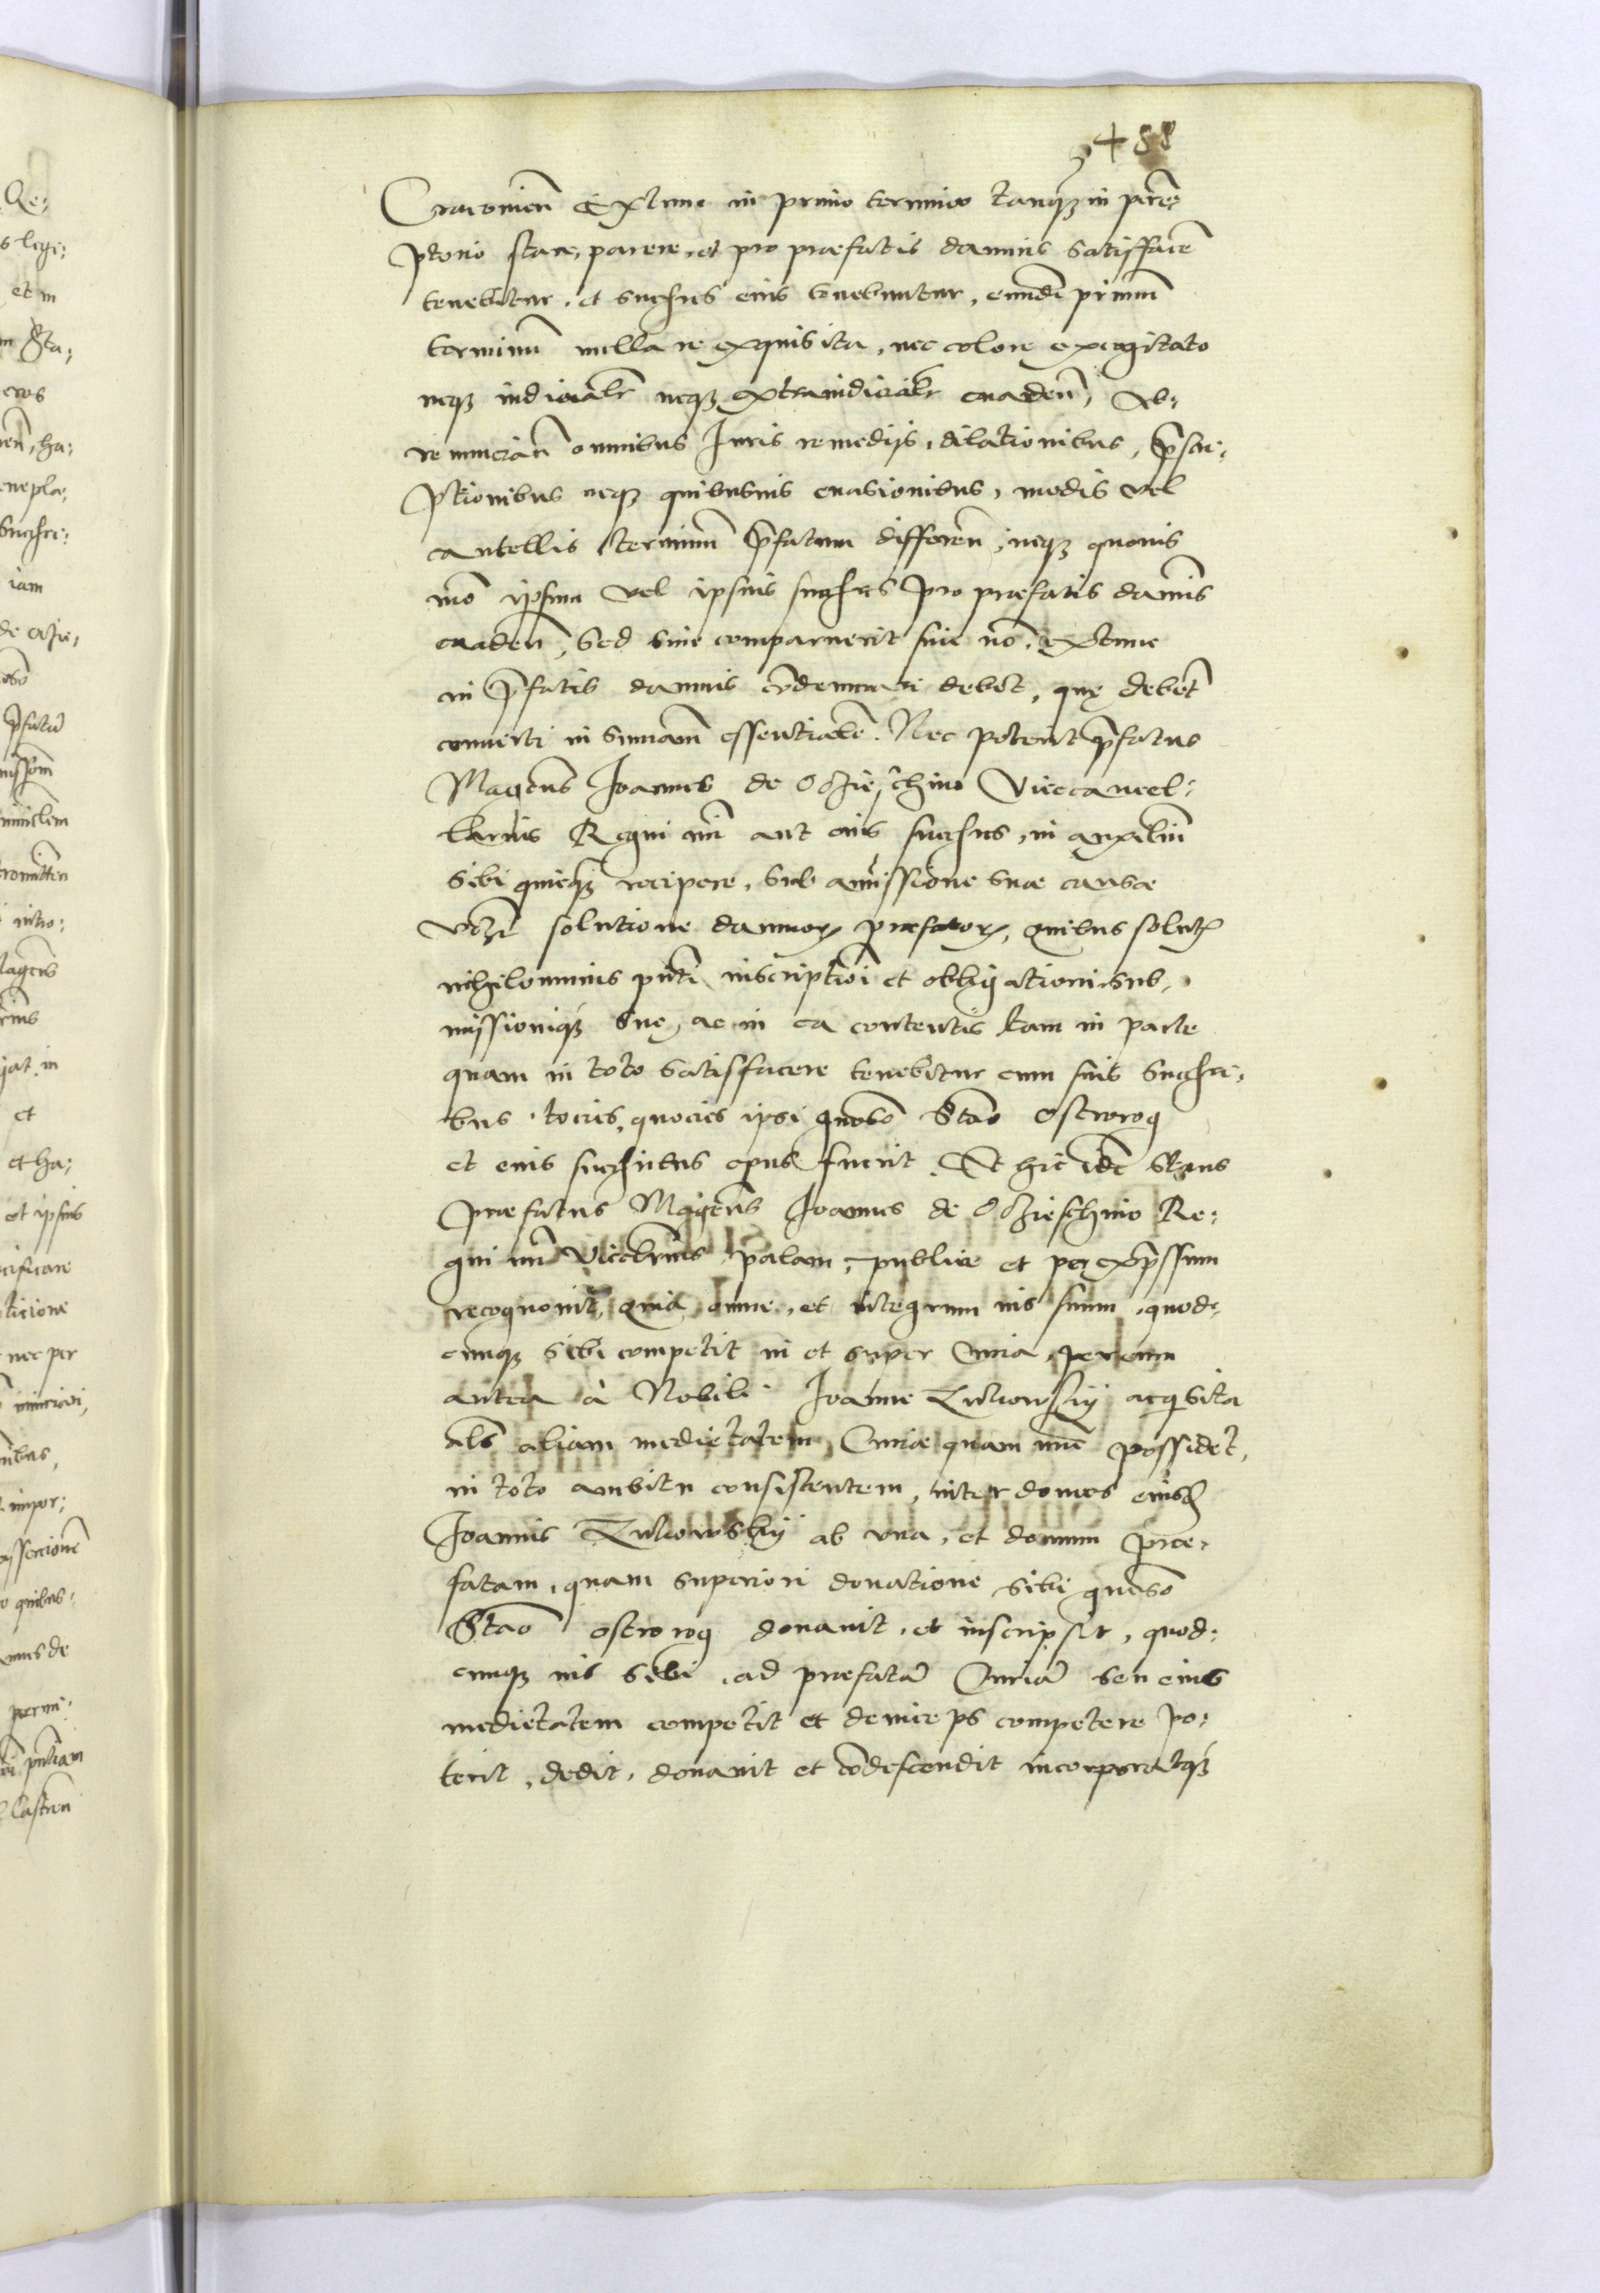 488
Cracovien̄ Extunc in primo termino tanq̨ in perē-
ptorio stare, parere, et pro praefatis damnis satisfacē
tenebitur, et successores eius tenebuntur, eundē primum
terminū nulla re exquisita, nec colore excogitato
neq̨ iudicialr̄ neq̨ extraiudicialr̄ evaden̄, Ab-
renuncian̄ omnibus Iuris remedijs, dilationibus, p̄scri-
ptionibus neq̨ quibusvis evasionibus, modis vel
cautellis terminū p̄fatum differen̄, neq̨ quovis
mō ipsum vel ipsius succ̄res pro praefatis damnis
evaden̄, Sed sive comparuerit sive nō, extunc
in p̄fatis damnis cōdemnari debet, quę debēt
converti in summam essentialē. Nec poterit p̄fatus
Mag̃cus Joannes de Oczieschino Vicecancel-
larius Regni mei aut eius succ̄res, in auxiliū
sibi quicq̨ recipere, sub amissione suae causae
solutione damnorꝝ praefatorꝝ, quibus solutꝭ
nihilominus pn̄ti inscriptioni et obligationi sub-
missioniq̨ suę, ac in ea contentis tam in parte
quam in toto satisfacere tenebitur cum suis succ̄ri-
bus toties, quocies ipsi gnoso Stao Ostrorog
et eius succ̄ribus opus fuerit. Et hic idē stans
praefatus Mag̃cus Joannes de Oczieschino Re-
gni mei Vicecl̄rius palam, publice et per exp̄ssum
recognovit, quia omne, et integrum ius suum, quod-
cunq̨ sibi competit in et super Curia, per eum
antea à Nobili Joanne acq̨sita
als̄ aliam medietatem Curiae quam nunc possidet,
in toto ambitu consistentem, inter domos eiusd̄
Joannis ab una, et domum prae-
fatam, quam superiori donatione sibi gnoso
Stao Ostrorog donavit, et inscripsit, quod-
cunq̨ ius sibi, ad praefatā Curiā seu eius
medietatem competit et deinceps competere po-
terit, dedit, donavit et cōdescendit incorporavitq̨